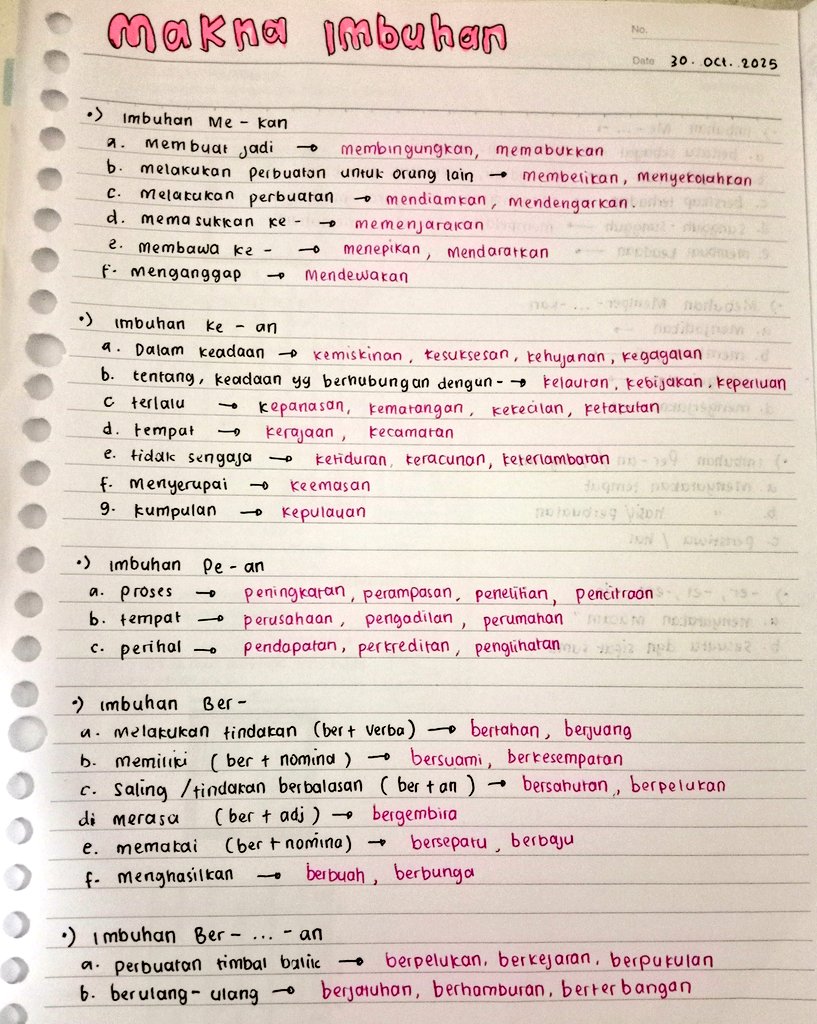 Makna Imbuhan
No.
Date 30. Oct. 2025
•) Imbuhan Me - kan
a. Membuat jadi → membingungkan, memabukkan
b. melakukan perbuatan untuk orang lain → membelikan, menyekolahkan
c. melakukan perbuatan → mendiamkan, mendengarkan.
d. memasukkan ke - → memenjarakan
e. membawa ke - → menepikan, mendaratkan
f. menganggap → Mendewakan
•) Imbuhan ke - an
a. Dalam keadaan → kemiskinan, kesuksesan, kehujanan, kegagalan
b. tentang, keadaan yg berhubungan dengan - → kelautan, kebijakan, keperluan
c terlalu → kepanasan, kematangan, kekecilan, ketakutan
d. tempat → kerajaan, kecamatan
e. tidak sengaja → ketiduran, keracunan, keterlambatan
f. menyerupai → keemasan
g. kumpulan → kepulauan
•) Imbuhan Pe - an
a. proses → peningkatan, perampasan, penelitian, pencitraan
b. tempat → perusahaan, pengadilan, perumahan
c. perihal → pendapatan, perkreditan, penglihatan
•) Imbuhan Ber -
a. Melakukan tindakan (ber + verba) → bertahan, berjuang
b. Memiliki (ber + nomina) → bersuami, berkesempatan
c. Saling /tindakan berbalasan (ber + an) → bersahutan, berpelukan
d. merasa (ber + adj) → bergembira
e. memakai (ber + nomina) → bersepatu, berbaju
f. menghasilkan → berbuah, berbunga
•) Imbuhan Ber - ... - an
a. perbuatan timbal balik → berpelukan, berkejaran, berpukulan
b. berulang - ulang → berjatuhan, berhamburan, berterbangan